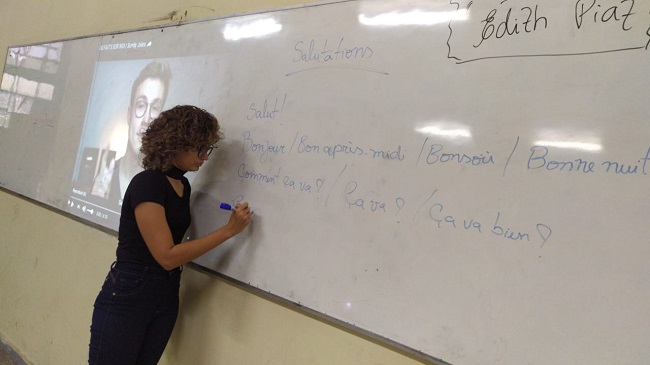 Edith Piaf
Salutations
Salut!
Bonjour / Bon après-midi / Bonsoir / Bonne nuit
Comment ça va? / Ça va? / Ça va bien?